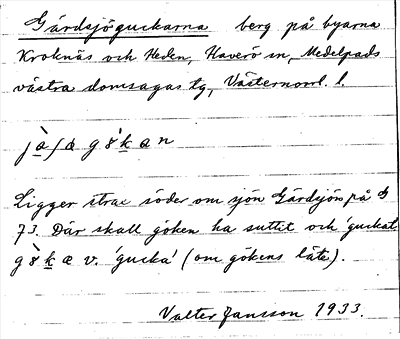 Gårdsjöguckarna berg på byarna
Kroknäs och Heden, Haverö sn, Medelpads
västra domsagas tg, Västernorrl. l.
Ligger strax söder om sjön Gårdsjön på G
73. Där skall göken ha suttit och 'guckat'
v. 'gucka' (om gökens läte).
Valter Jansson 1933.